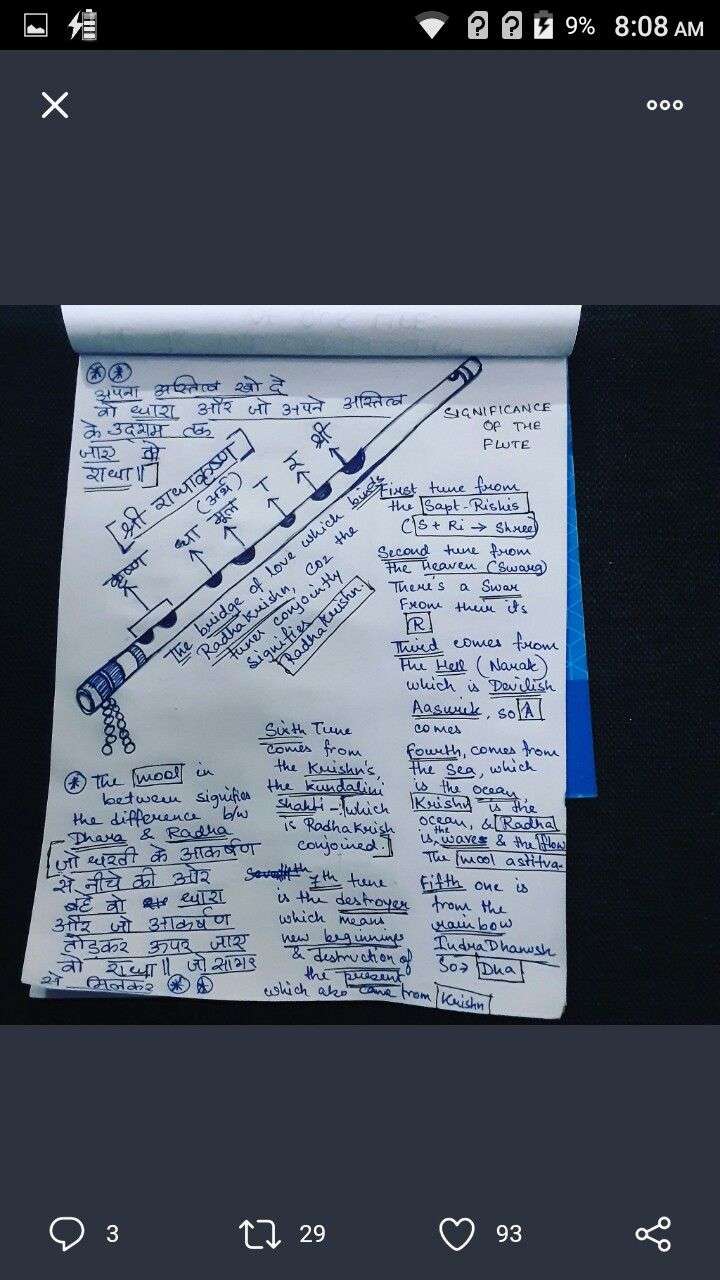 9%
8:08 AM
अपना अस्तित्व खो दे
वो धारा और जो अपने अस्तित्व
के उदगम तक
जाए वो
राधा॥
SIGNIFICANCE
OF THE
FLUTE
[श्री राधाकृष्ण]
(अर्थ)
कृष्ण
धा
मूल
ा
र
श्री
The bridge of love which binds
Radhakrishn, coz the
tunes conjointly
signifies
Radhakrishn.
First tune from
the Sapt-Rishis
(S + Ri → Shree)
Second tune from
the Heaven (Swarg)
There's a Swar
From their its
R
Third comes from
the Hell (Narak)
which is Devilish
Aasurik, so A
comes
Fourth, comes from
the Sea, which
is the ocean
Krishn is the
ocean, & Radha
is the waves & the flow
The mool astitva.
Fifth one is
from the
rainbow
IndraDhanush
So, Dha
Sixth Tune
comes from
the Krishn's
the kundalini
shakti - which
is Radhakrish
conjoined.
7th tune
is the destroyer
which means
new beginnings
& distruction of
the present
which also came from Krishn
The mool in
between signifies
the difference b/w
Dhara & Radha
जो धरती के आकर्षण
से नीचे की ओर
बहे वो धारा
और जो आकर्षण
तोड़कर ऊपर जाए
वो राधा॥ जो सागर
से मिलकर
3
29
93